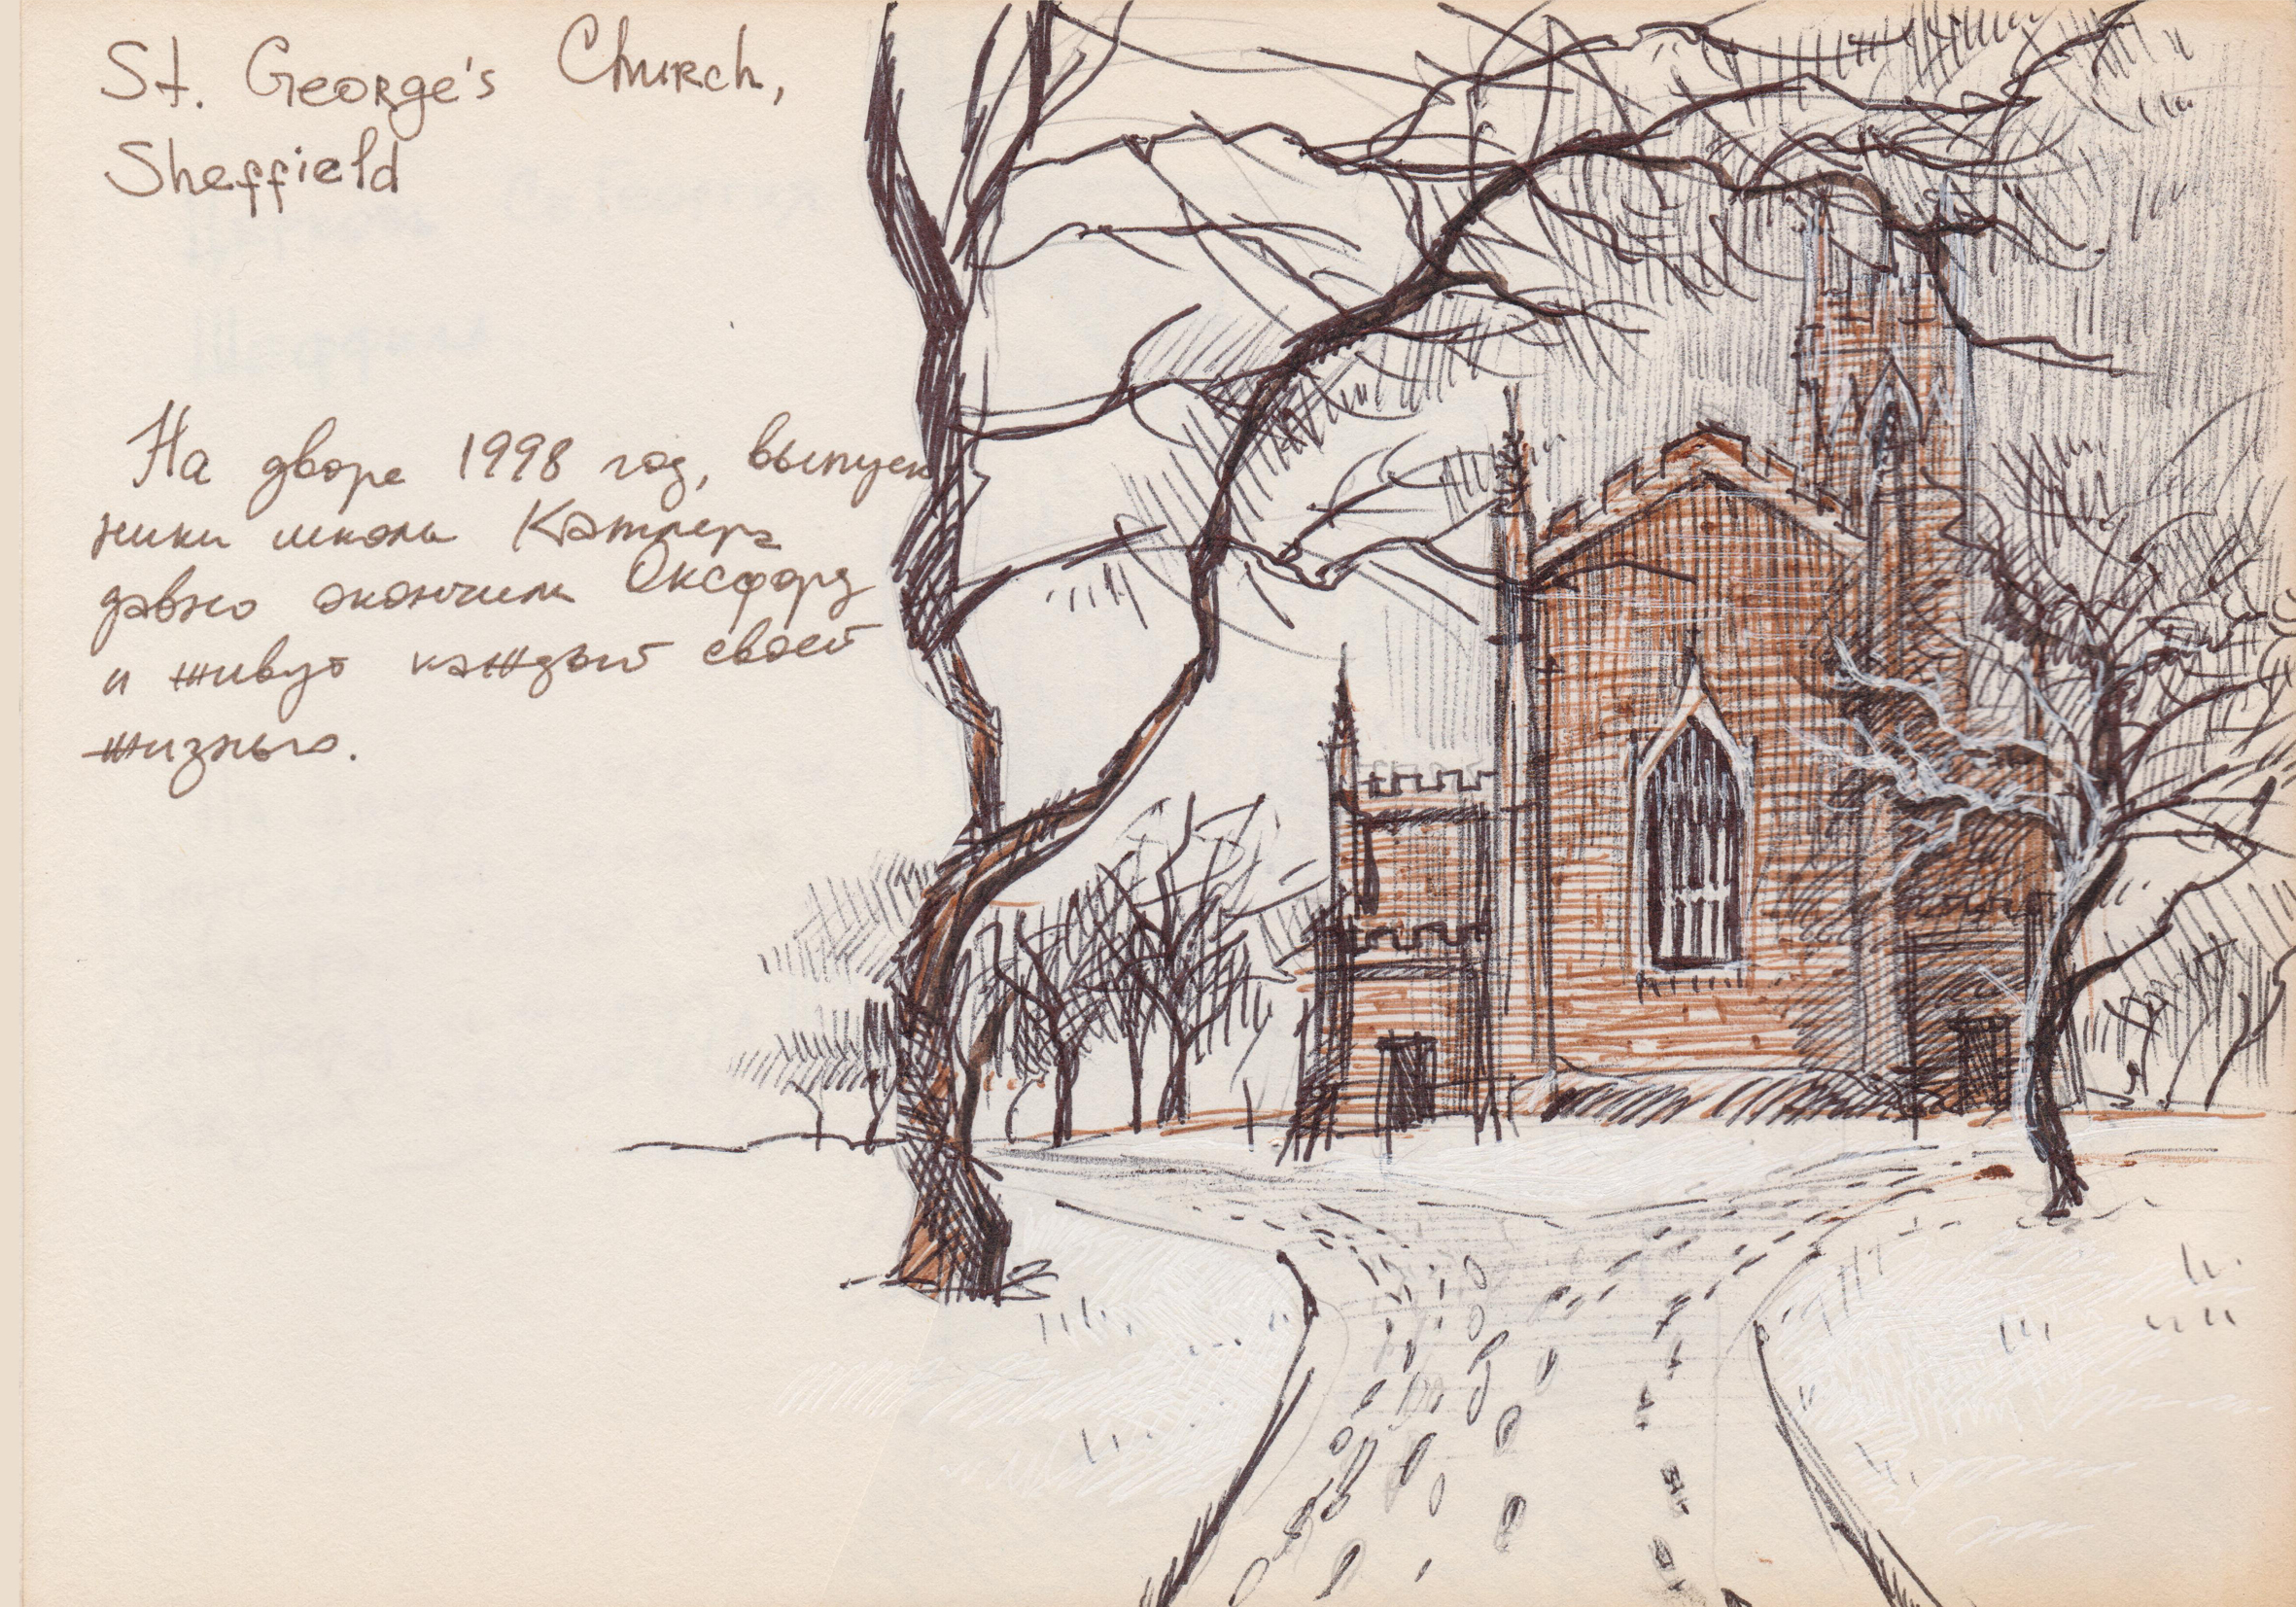 St. George's Church,
Sheffield
На дворе 1998 год, выпуск
ники школы Катлера
давно окончили Оксфорд
и живут каждый своей
жизнью.